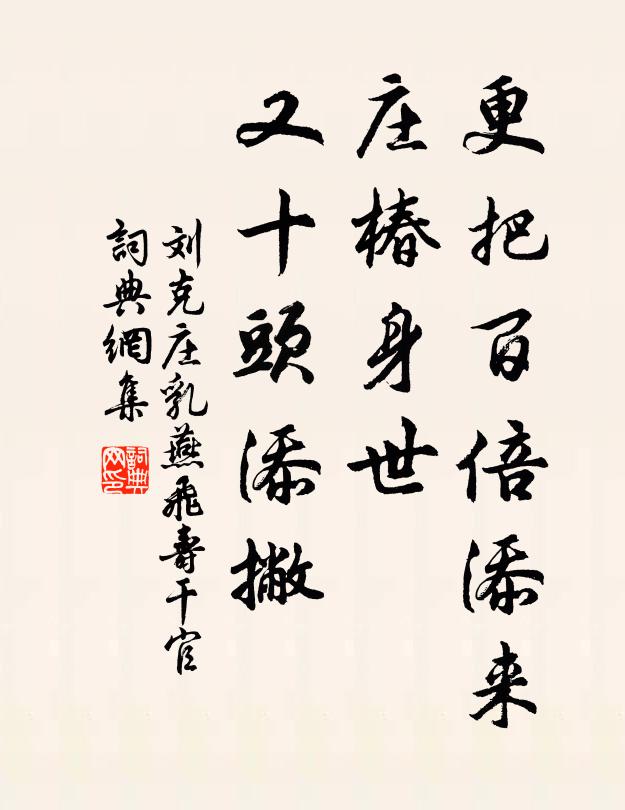 更把百倍添来
庄椿身世
又十頭添撇
刘克庄乳燕飛壽干官
詞典網集
詞典网印